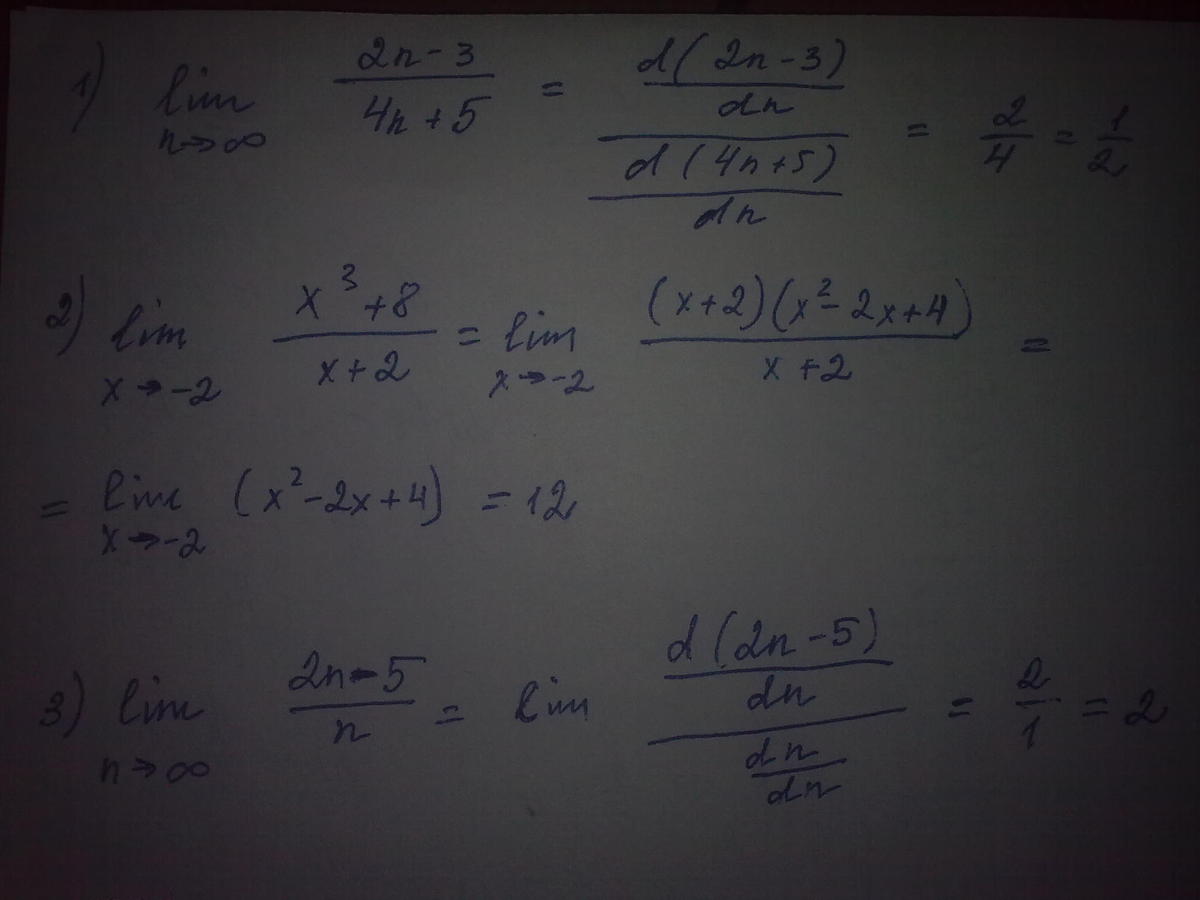 1) lim n→∞ (2n-3)/(4n+5) = (d(2n-3)/dn)/(d(4n+5)/dn) = 2/4 = 1/2
2) lim x→-2 (x³+8)/(x+2) = lim x→-2 ((x+2)(x²-2x+4))/(x+2) =
= lim x→-2 (x²-2x+4) = 12
3) lim n→∞ (2n-5)/n = lim (d(2n-5)/dn)/(dn/dn) = 2/1 = 2